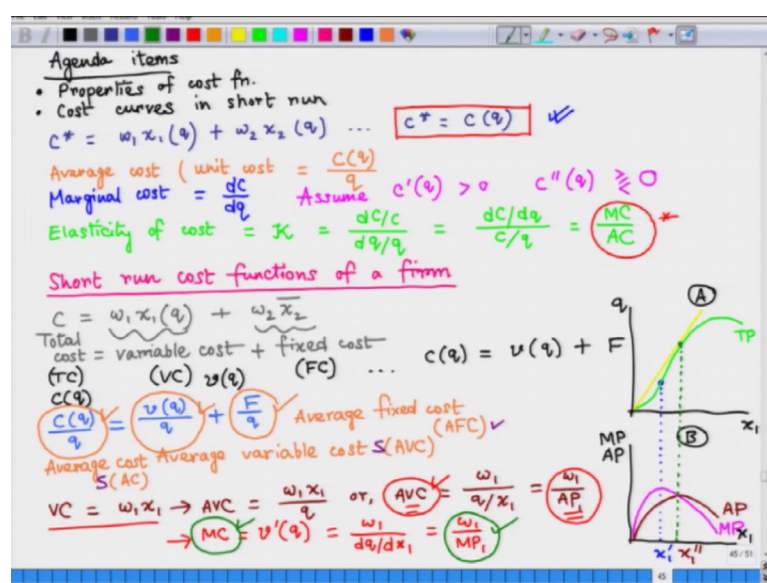 Agenda items
• Properties of cost fn.
• Cost curves in short run
c* = w₁x₁(q) + w₂x₂(q) ... c* = c(q)
Average cost (unit cost = C(q)/q
Marginal cost = dC/dq Assume c'(q) > 0 c''(q) ⋛ 0
Elasticity of cost = K = dC/C / dq/q = dC/dq / C/q = MC/AC *
Short run cost functions of a firm
C = w₁x₁(q) + w₂x̄₂
Total cost = variable cost + fixed cost
(TC) (VC) v(q) (FC) ... c(q) = v(q) + F
C(q)
C(q)/q = v(q)/q + F/q Average fixed cost (AFC)
Average cost Average variable cost S(AVC)
S(AC)
VC = w₁x₁ → AVC = w₁x₁/q or, AVC = w₁/q/x₁ = w₁/AP₁
→ MC = v'(q) = w₁/dq/dx₁ = w₁/MP₁
q A
TP
x₁
MP
AP B
AP
MP x₁
x₁' x₁''
45/51
45